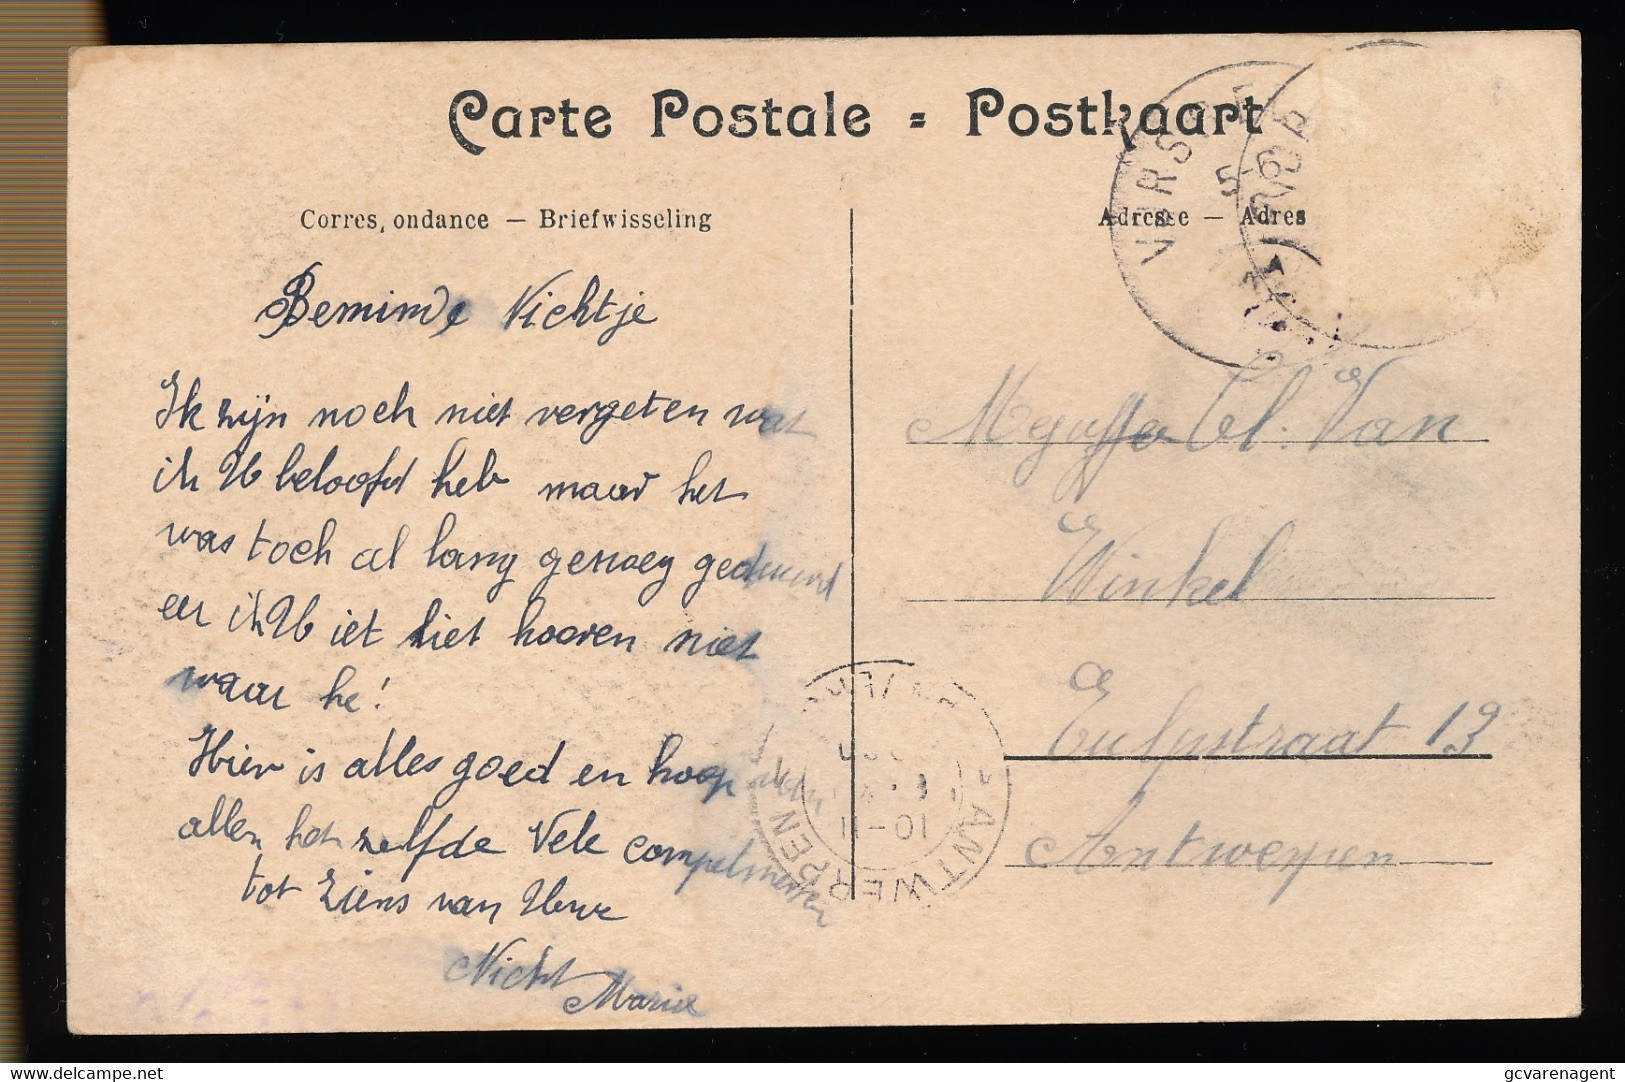 Carte Postale = Postkaart
Corres, ondance — Briefwisseling
Adresse — Adres
Beminde Nichtje
Ik zijn noch niet vergeten wat
ik U beloofd heb maar het
was toch al lang genoeg geduurd
eer ik U iet liet hooren niet
waar he!
Hier is alles goed en hoop
allen het zelfde Vele compelmenten
tot ziens van Uwe
Nicht
Marie
Mejuffer Cl. Van
Winkel
straat 13
Antwerpen
5-6
ANTWERPEN
10-11
www.delcampe.net
gcvarenagent